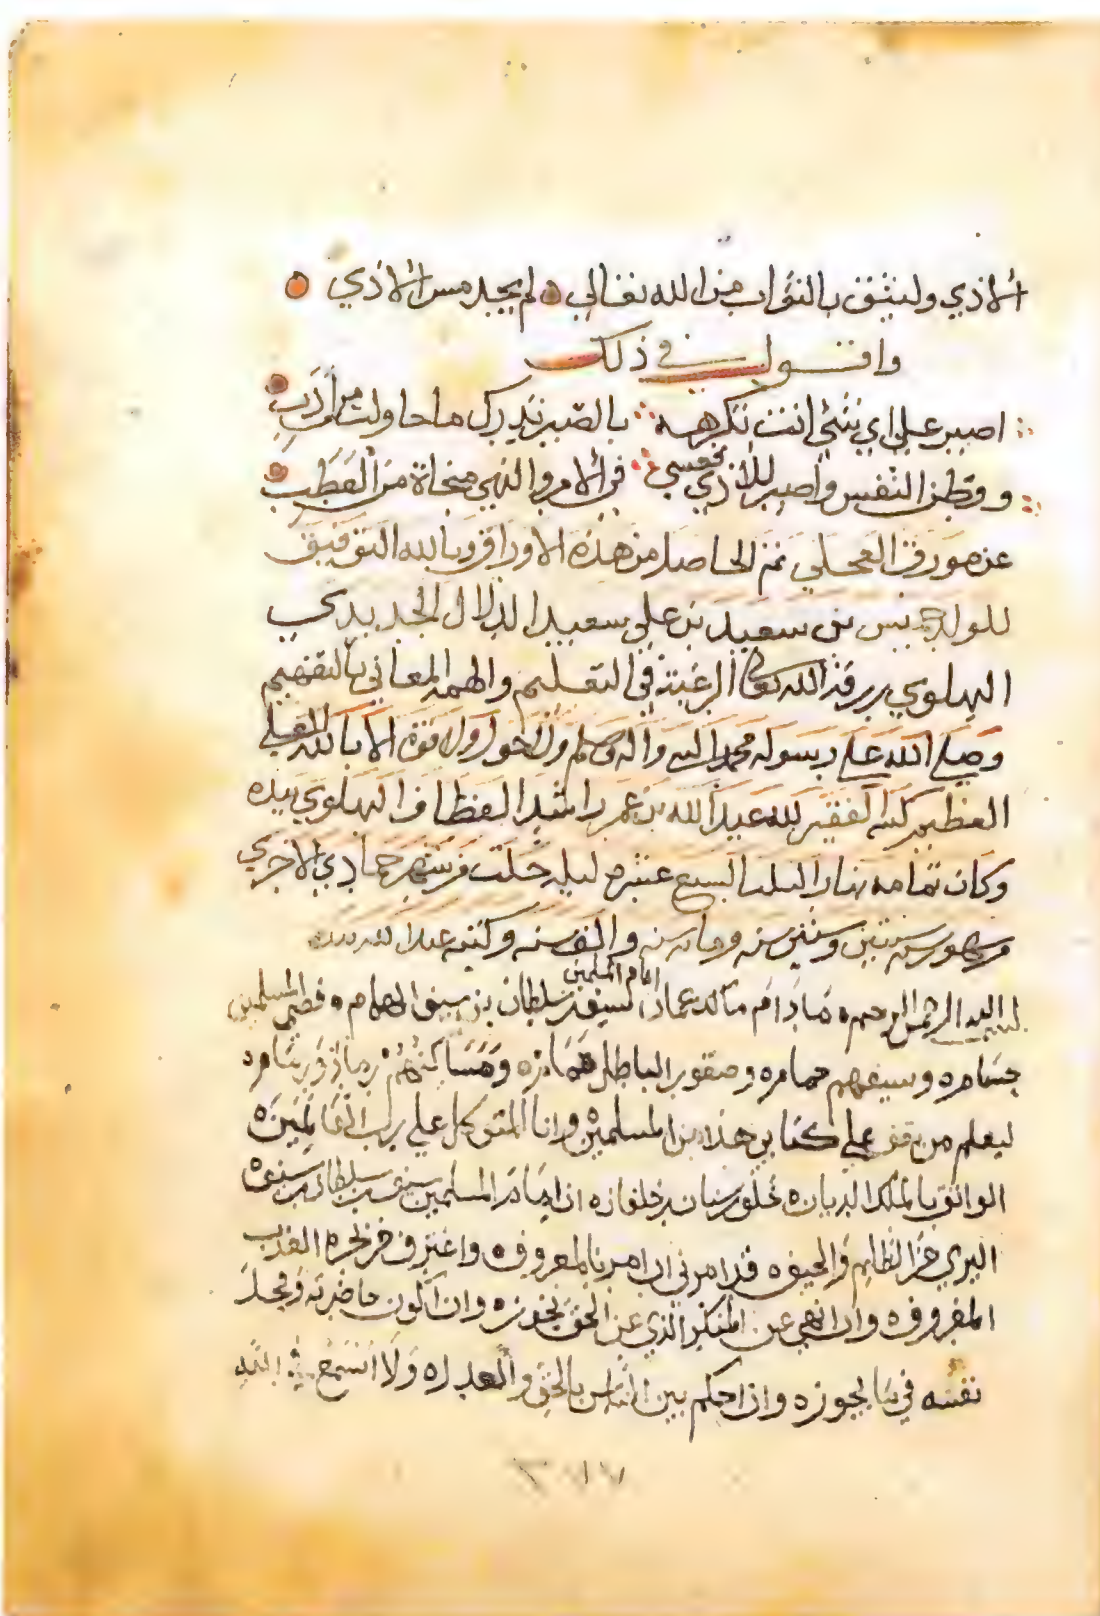 الاذي وليثق بالثواب من الله تعالى لم يجد مس الاذي
واقول في ذلك
اصبر على اي شيء انت تكرهه بالصبر تدرك ما حاولت من أدب
ووطن النفس واصبر للاذي تحتسي في الامر والنهي منجاة من العطب
عن مورق العجلي تم الحاصل من هذه الاوراق وبالله التوفيق
للولد خميس بن سعيد بن علي سعيد الدلال الجديدي
البهلوي رزقه الله تعالى الرغبة في التعليم والهمه المعاني بالتفهيم
وصلى الله على رسوله محمد النبي واله وسلم ولا حول ولا قوة الا بالله العلي
العظيم كتبه الفقير لله عبد الله بن عمر راشد البهلوي بيده
وكان تمامه نهار السبع عشره ليله خلت من شهر جمادي الاخري
من شهور سنه سنتين وستين سنه ومايه سنه والف سنه وكتبه عبد الله بيده
بسم الله الرحمن الرحيم ما دام مالك عمان امام المسلمين سيف بن سلطان بن سيف الهمام فصل المسلمين
حسامه وسيفهم حمامه وصقور الباطل
ليعلم من يقف على كتابي هذا من المسلمين وانا المتوكل على رب العالمين
الواثق بالملك الديان خلف بن سنان بن خلفان ان امام المسلمين سيف بن سلطان بن سيف
البري من الظلم والحيف قد امرني ان امر بالمعروف واغترف من بحره العذب
المغروف وان انهي عن المنكر الذي عن الحق وان اكون حاضرته ومحل
نفسه في ما يجوز وان احكم بين الناس بالحق والعدل ولا اسمع في الله
٢٠١٧